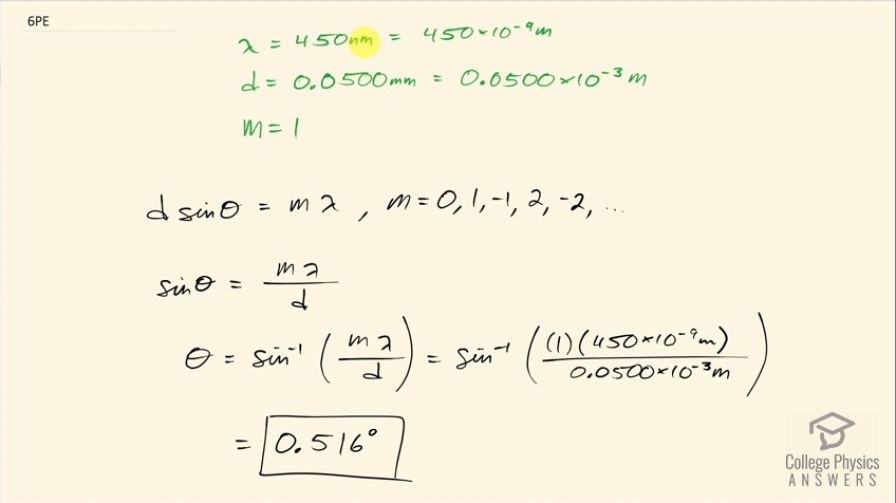 6PE
λ = 450nm = 450×10⁻⁹m
d = 0.0500mm = 0.0500×10⁻³m
m = 1
d sinθ = mλ , m = 0, 1, -1, 2, -2, ...
sinθ = mλ/d
θ = sin⁻¹(mλ/d) = sin⁻¹((1)(450×10⁻⁹m)/0.0500×10⁻³m)
= 0.516°
College Physics
ANSWERS